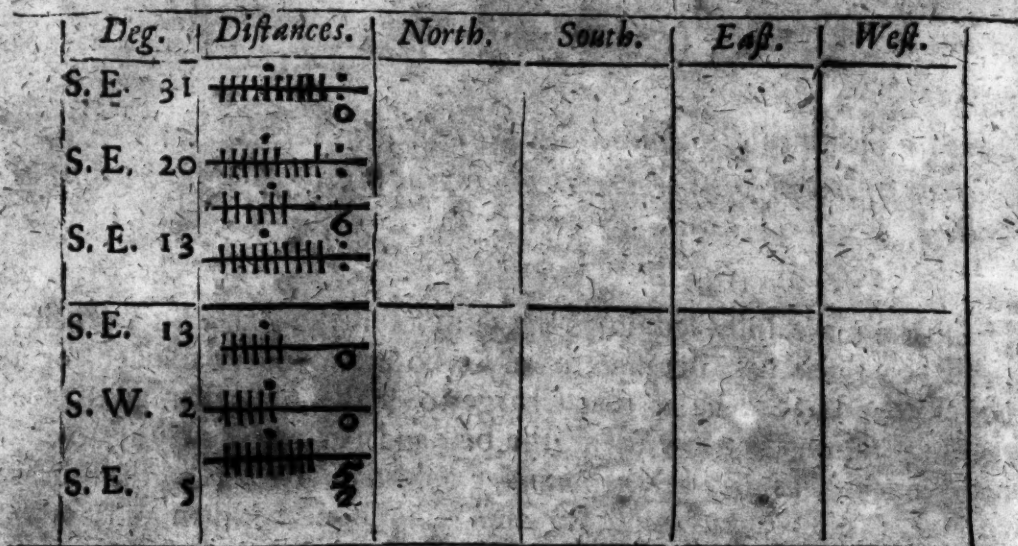 Deg. Diſtances. North. South. Eaſt. Weſt.
S. E. 31 0
S. E. 20
6
S. E. 13
S. E. 13 0
S. W. 2 0
5
S. E. 5 2